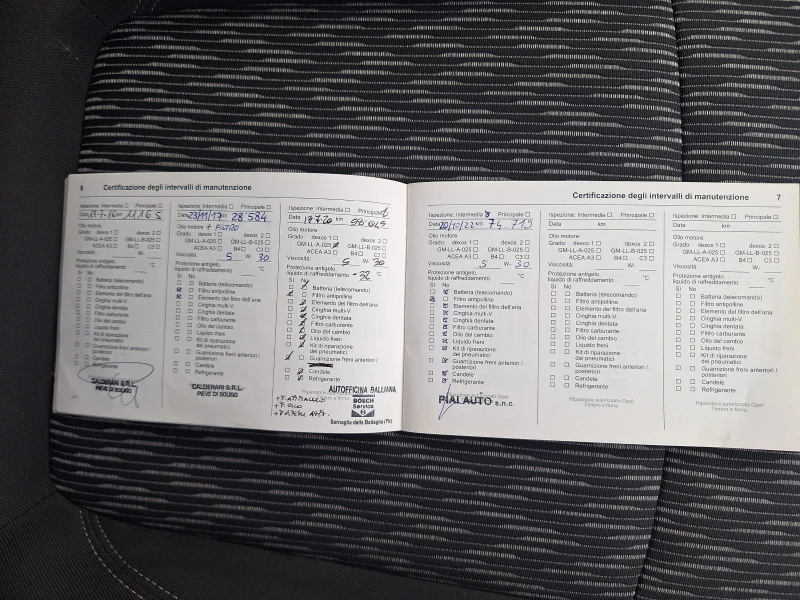 6 Certificazione degli intervalli di manutenzione
Ispezione: Intermedia Principale
Data 13-7-16 km 11165
Olio motore
Grado: dexos 1 dexos 2
GM-LL-A-025 GM-LL-B-025
ACEA A3 B4 C3
Viscosità W-
Protezione antigelo,
liquido di raffreddamento °C
Sì No
Batteria (telecomando)
Filtro antipolline
Elemento del filtro dell'aria
Cinghia multi-V
Cinghia dentata
Filtro carburante
Olio del cambio
Liquido freni
Kit di riparazione
dei pneumatici
Guarnizione freni anteriori /
posteriori
Candele
Refrigerante
CALDERARI S.R.L.
PIEVE DI SOLIGO
Ispezione: Intermedia Principale
Data 23/11/17 km 28 584
Olio motore + FILTRO
Grado: dexos 1 dexos 2
GM-LL-A-025 GM-LL-B-025
ACEA A3 B4 C3
Viscosità 5 W- 30
Protezione antigelo,
liquido di raffreddamento °C
Sì No
Batteria (telecomando)
Filtro antipolline
Elemento del filtro dell'aria
Cinghia multi-V
Cinghia dentata
Filtro carburante
Olio del cambio
Liquido freni
Kit di riparazione
dei pneumatici
Guarnizione freni anteriori /
posteriori
Candele
Refrigerante
CALDERARI S.R.L.
PIEVE DI SOLIGO
Ispezione: Intermedia Principale
Data km
Olio motore
Grado: dexos 1 dexos 2
GM-LL-A-025 GM-LL-B-025
ACEA A3 B4 C3
Viscosità 5 W- 30
Protezione antigelo,
liquido di raffreddamento -32 °C
Sì No
Batteria (telecomando)
Filtro antipolline
Elemento del filtro dell'aria
Cinghia multi-V
Cinghia dentata
Filtro carburante
Olio del cambio
Liquido freni
Kit di riparazione
dei pneumatici
Guarnizione freni anteriori /
Candele
Refrigerante
AUTOFFICINA BALLIANA
BOSCH
Service
Sernaglia della Battaglia (TV)
Certificazione degli intervalli di manutenzione 7
Ispezione: Intermedia Principale
Data 20/10/22 km 74.719
Olio motore
Grado: dexos 1 dexos 2
GM-LL-A-025 GM-LL-B-025
ACEA A3 B4 C3
Viscosità 5 W- 30
Protezione antigelo,
liquido di raffreddamento °C
Sì No
Batteria (telecomando)
Filtro antipolline
Elemento del filtro dell'aria
Cinghia multi-V
Cinghia dentata
Filtro carburante
Olio del cambio
Liquido freni
Kit di riparazione
dei pneumatici
Guarnizione freni anteriori /
posteriori
Candele
Refrigerante
Riparatore autorizzato Opel
Timbro e firma
PIALAUTO s.n.c.
Ispezione: Intermedia Principale
Data km
Olio motore
Grado: dexos 1 dexos 2
GM-LL-A-025 GM-LL-B-025
ACEA A3 B4 C3
Viscosità W-
Protezione antigelo,
liquido di raffreddamento °C
Sì No
Batteria (telecomando)
Filtro antipolline
Elemento del filtro dell'aria
Cinghia multi-V
Cinghia dentata
Filtro carburante
Olio del cambio
Liquido freni
Kit di riparazione
dei pneumatici
Guarnizione freni anteriori /
posteriori
Candele
Refrigerante
Riparatore autorizzato Opel
Timbro e firma
Ispezione: Intermedia Principale
Data km
Olio motore
Grado: dexos 1 dexos 2
GM-LL-A-025 GM-LL-B-025
ACEA A3 B4 C3
Viscosità W-
Protezione antigelo,
liquido di raffreddamento °C
Sì No
Batteria (telecomando)
Filtro antipolline
Elemento del filtro dell'aria
Cinghia multi-V
Cinghia dentata
Filtro carburante
Olio del cambio
Liquido freni
Kit di riparazione
dei pneumatici
Guarnizione freni anteriori /
posteriori
Candele
Refrigerante
Riparatore autorizzato Opel
Timbro e firma